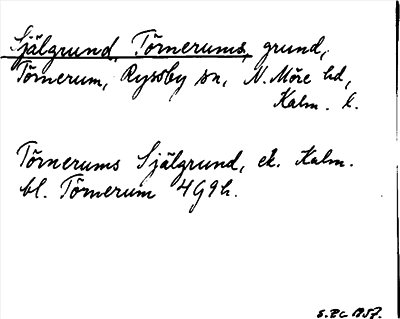 Själgrund, Törnerums, grund,
Törnerum, Ryssby sn, N. Möre hd,
Kalm. l.
Törnerums Själgrund, ek. Kalm.
bl. Törnerum 4G9h.